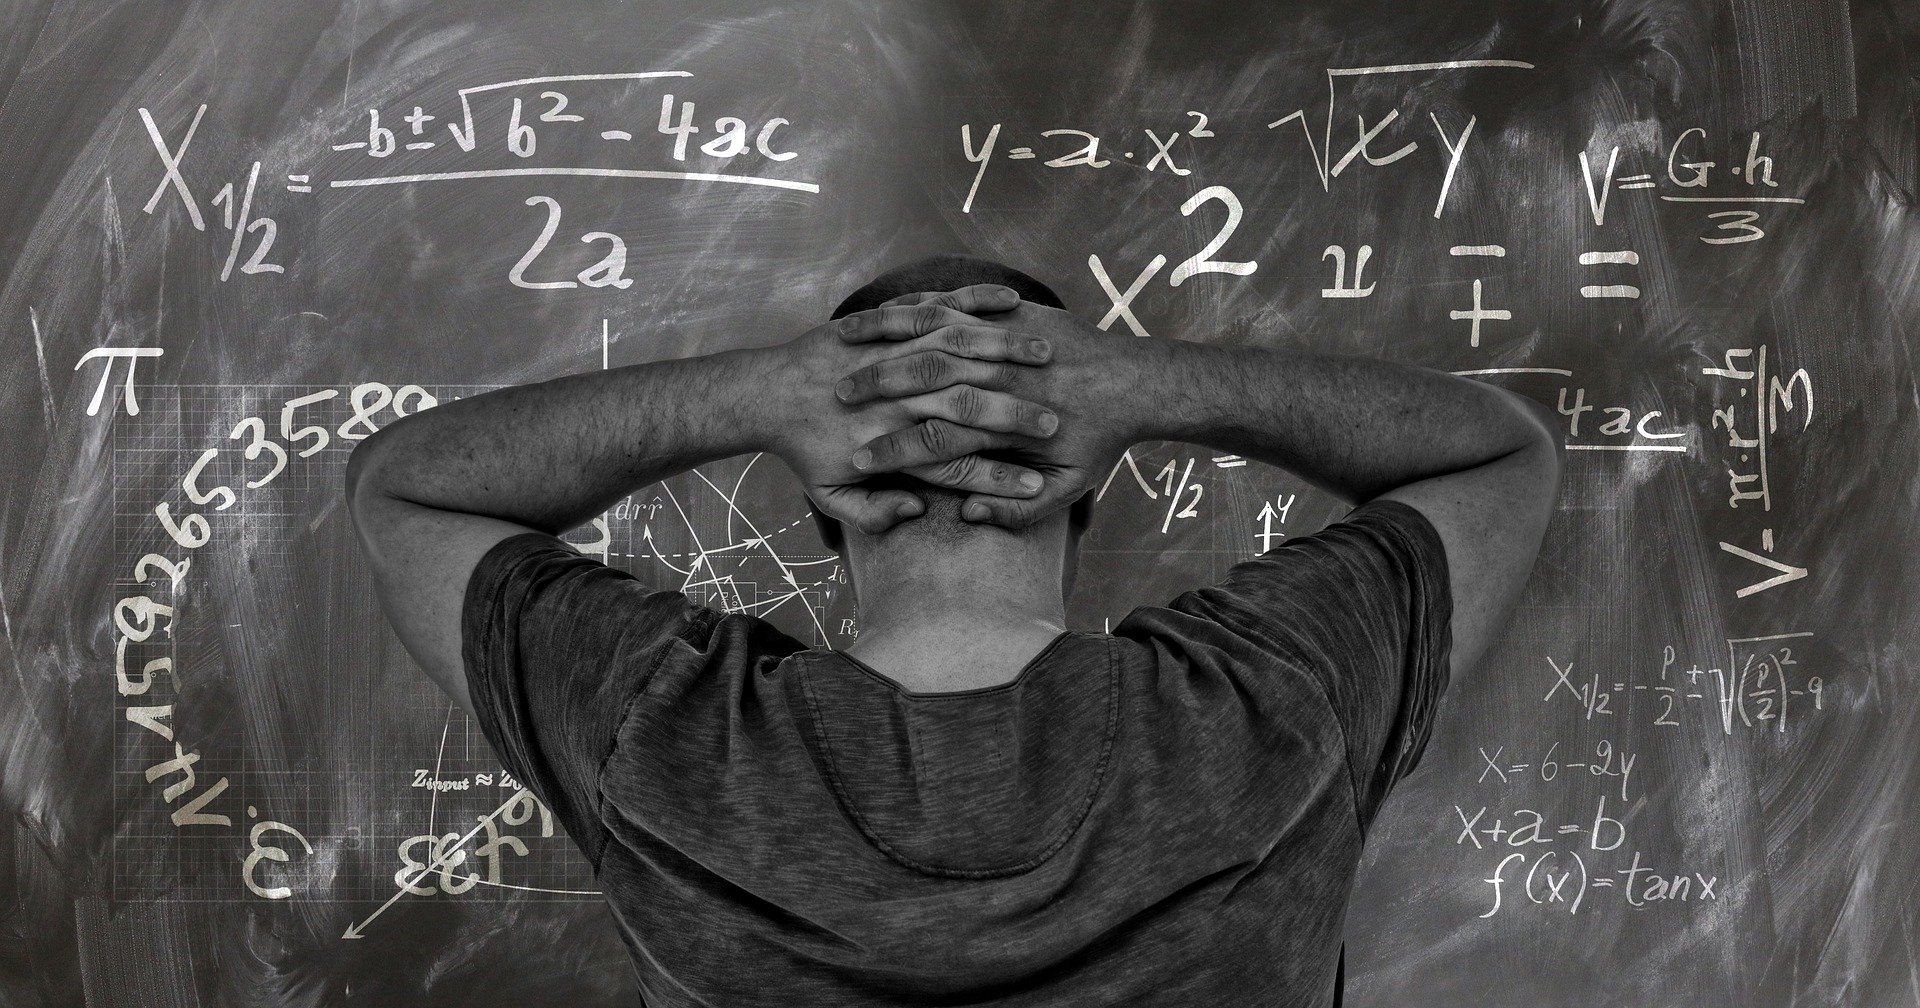 X1/2 = -b±√b²-4ac
2a
y=a·x²
√x y
V=G·h
3
x² x - =
+
π
3.141592653589
4ac
X1/2 =
V=π·r²·h
3
y
dr r̂
I0
R
Zinput ≈ Z0
X1/2=-p/2±√(p/2)²-q
x=6-2y
x+a=b
f(x)=tanx